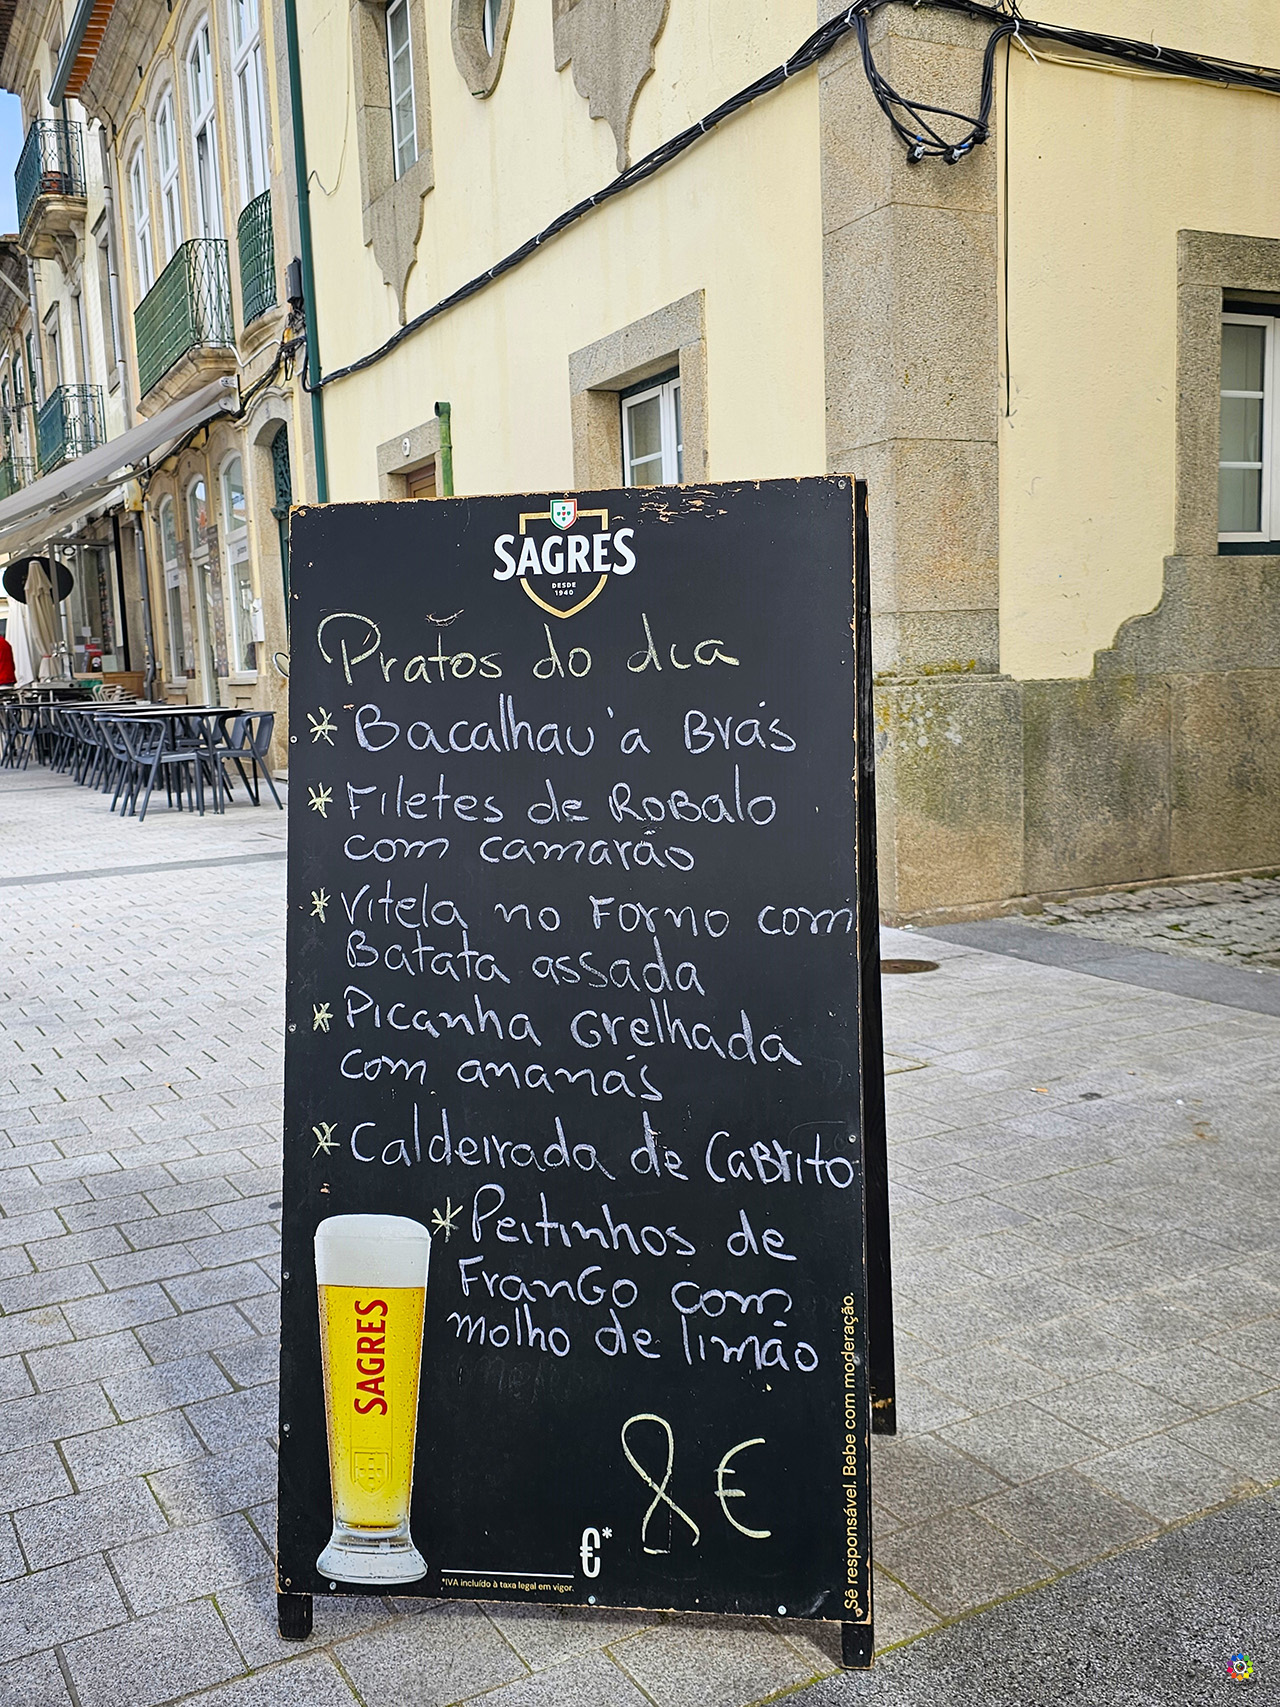 SAGRES
DESDE
1940
Pratos do dia
* Bacalhau à Brás
* Filetes de Robalo
com camarão
* Vitela no Forno com
Batata assada
* Picanha Grelhada
com ananás
* Caldeirada de Cabrito
* Peitinhos de
Frango com
molho de limão
SAGRES
8€
€*
*IVA incluído à taxa legal em vigor.
Sê responsável. Bebe com moderação.